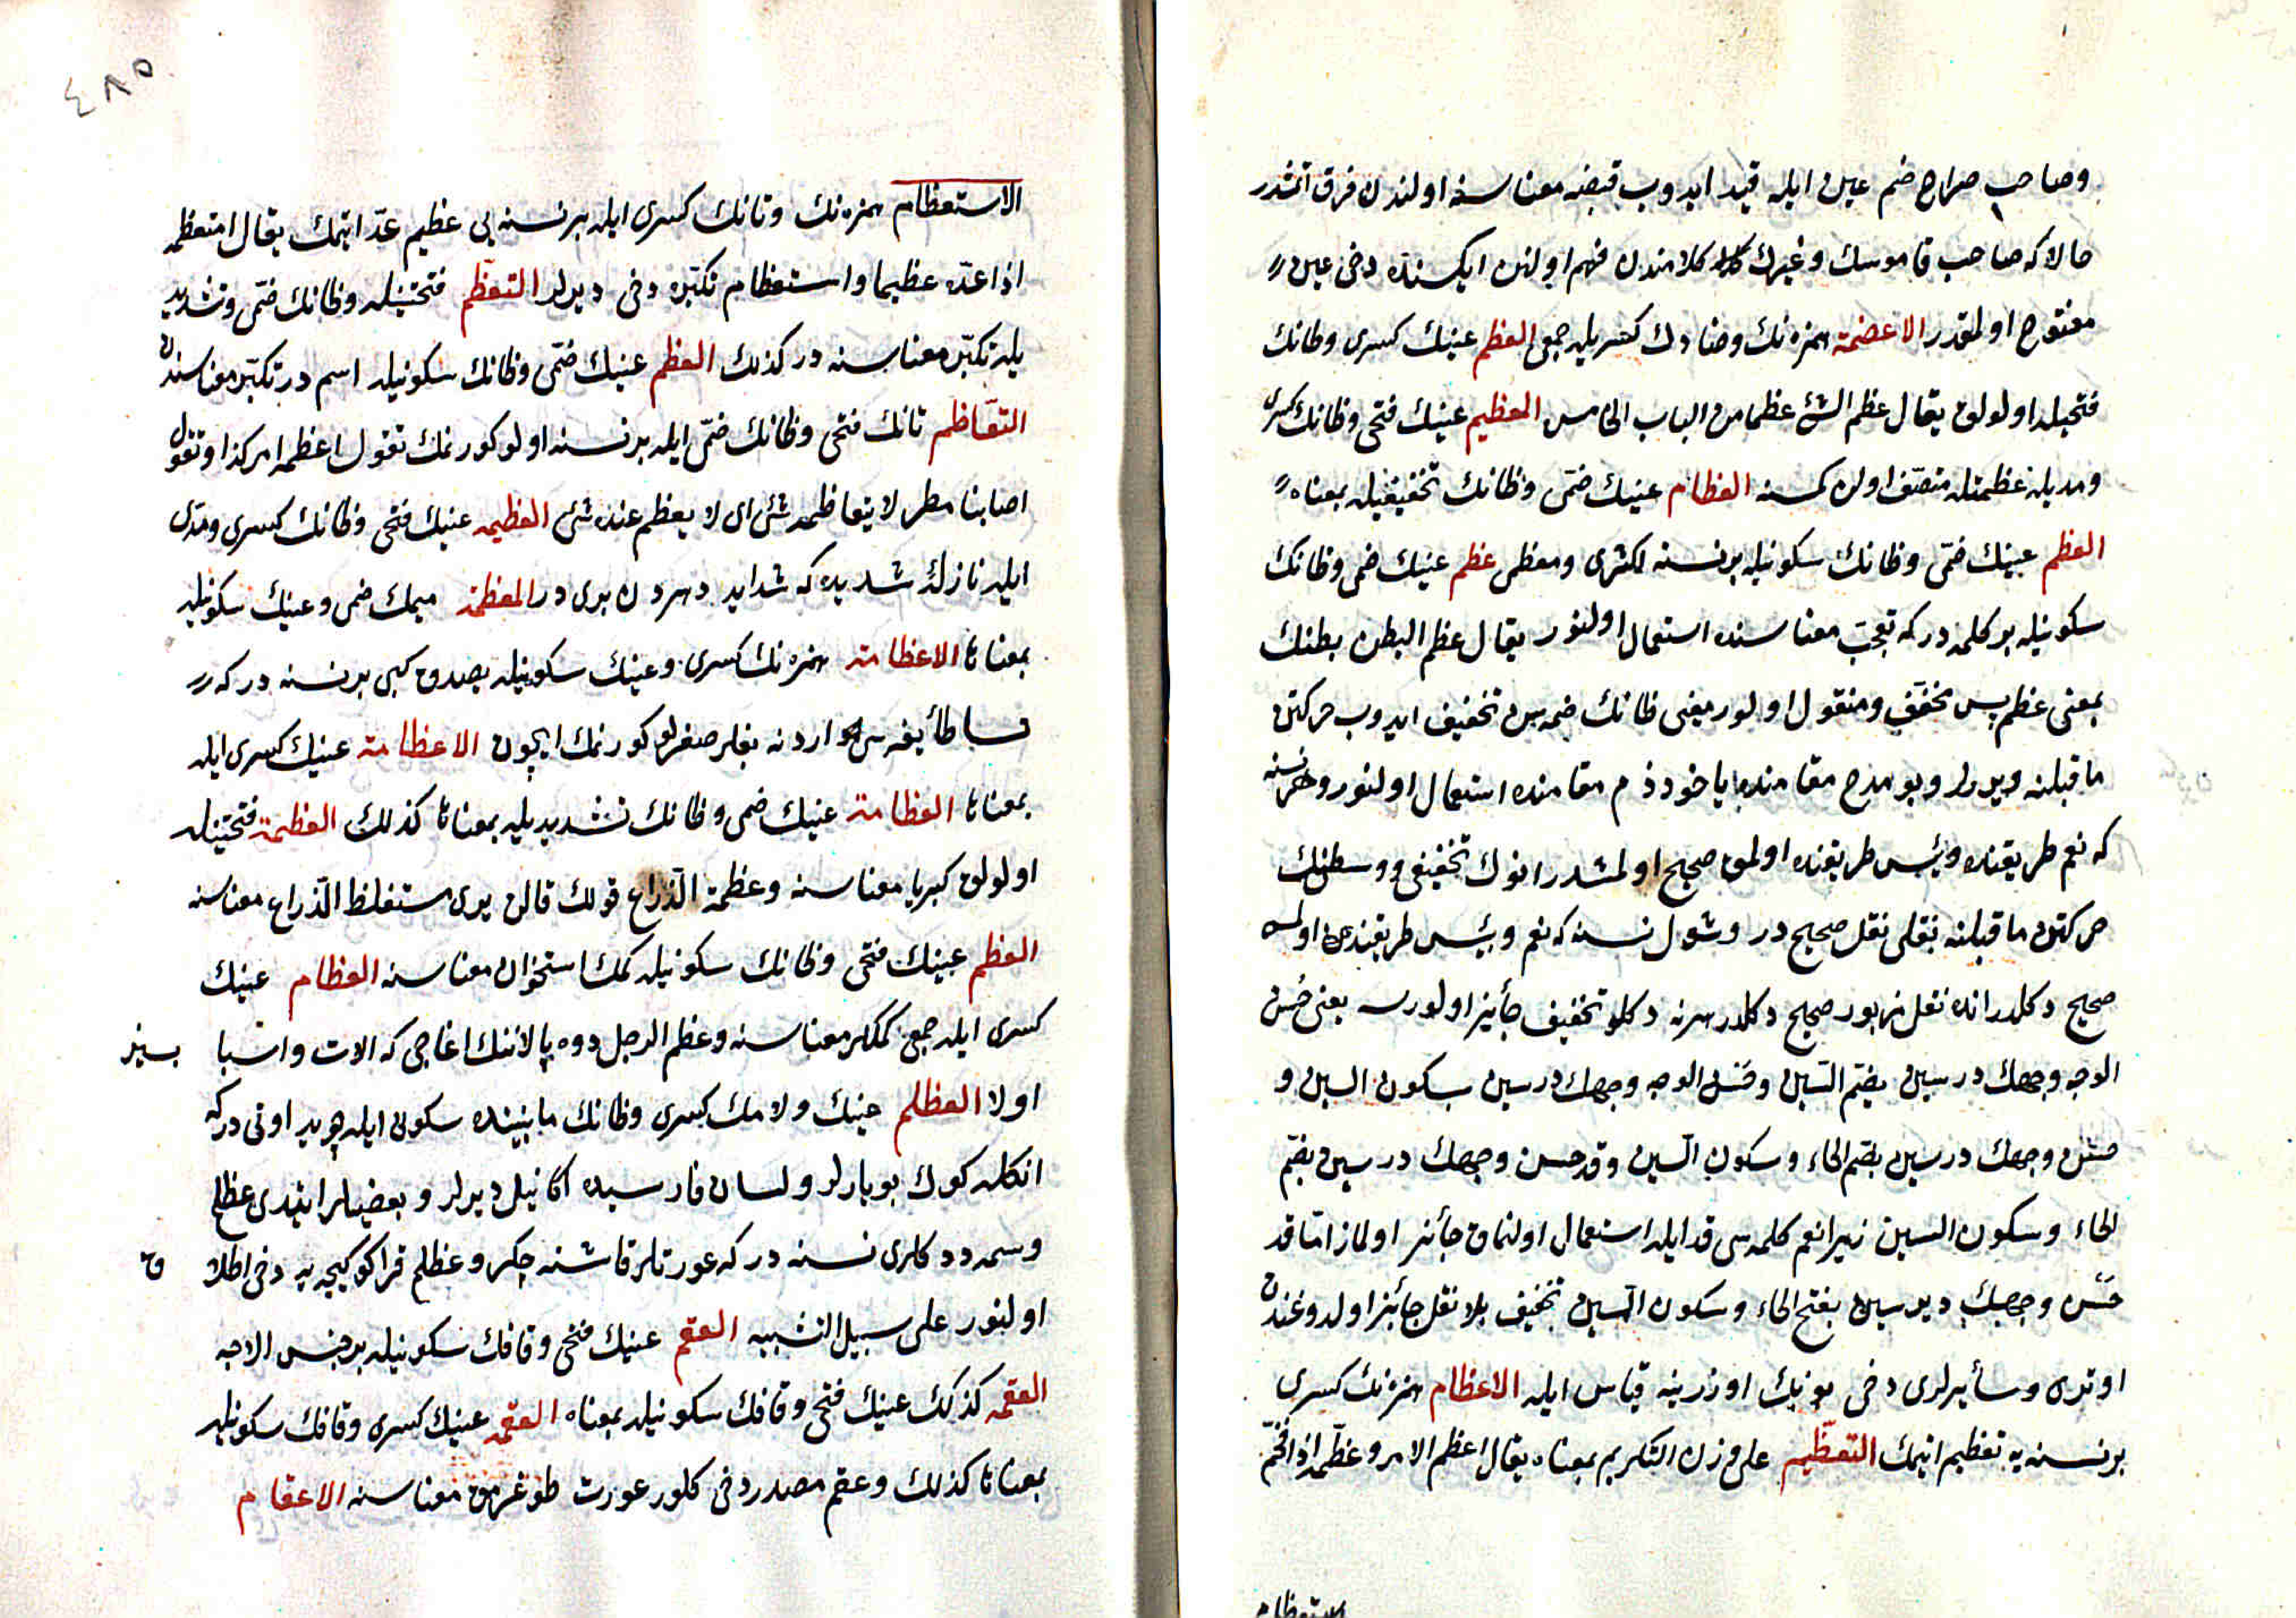 وصاحب صراح ضم عين ايله قيد ايدوب قبضه معناسنه اولندن فرق اتمشدر
حالا كه صاحب قاموسك وغيرك كلامندن فهم اولنن ايكسنده دخى عين
مفتوح اولمقدر الاعضمة همزه نك وضادك كسريله جمعى العظم عينك كسرى وظانك
فتحيله اولولق يقال عظم الشئ عظما من الباب الخامس العظيم عينك فتحى وظانك كسرى
ومديله عظمتله متصف اولن كمسنه العظام عينك ضمى وظانك تخفيفيله بمعناه
العظم عينك ضمّى وظانك سكونيله برنسنه اكثرى ومعظمى عظم عينك ضمى وظانك
سكونيله بر كلمه در كه تعجب معناسنده استعمال اولنور يقال عظم البطن بطنك
بمعنى عظم پس مخفف ومنقول اولور يعنى ظانك ضمه سن تخفيف ايدوب حركتن
ماقبلنه ويررلر وبو مدح مقامنده ياخود ذم مقامنده استعمال اولنور وهرنسنه
كه نعم طريقنده وبئس طريقنده اولمق صحيح اولمشدر انوك تخفيفى ووسطنك
حركتن ماقبلنه نقلى نقل صحيح در وشول نسنه كه نعم وبئس طريقندن اولمسه
صحيح دكلدر انده نقل مزبور صحيح دكلدر هرنه دكلو تخفيف جائيز اولورسه يعنى حُسن
الوجه وجهك درسين بضم السّين وحسن الوجه وجهك درسين بسكون السين و
حسن وجهك درسين بضم الحاء وسكون السين وقد حسن وجهك درسين بضم
الحاء وسكون السين زيرا نعم كلمه سى قد ايله استعمال اولنماق جائز اولماز امّا قد
حَسْن وجهك ديرسين بفتح الحاء وسكون السين تخفيف بلا نقل جائز اولدوغندن
اوترى وسائيرلرى دخى بونك اوزرينه قياس ايله الاعظام همزه نك كسرى
برنسنه يه تعظيم اتيمك التعظيم على وزن التكريم بمعناه يقال اعظم الامر وعظّمه اذا فخّم
الاستعظام
٤٨٥
الاستعظام همزه نك وتانك كسرى ايله برنسنه يى عظيم عدّ ايتمك يقال استعظمه
اذا عدّه عظيما واستعظام تكبّره دخى ديرلر التعظّم فتحتينله وظانك ضمّى وتشديد
يله تكبّر معناسنه در كذلك العظم عينك ضمّى وظانك سكونيله اسم در تكبّر معناسندن
التعاظم تانك فتحى وظانك ضمّى ايله برنسنه اولو كورنمك تقول اعظمه امر كذا وتقول
اصابنا مطر لا يتعاظمه شئ اى لا يعظم عنده شئ العظيمه عينك فتحى وظانك كسرى ومدّى
ايله نازلۀ شديده كه شدايد دهردن برى در المعظمة ميمك ضمى وعينك سكونيله
بمعناها الاعظامة همزه نك كسرى وعينك سكونيله يصدوق كبى برنسنه در كه
نسا طائيفه سى اردنه بغلر صغرلو كورنمك ايچون الاعظامة عينك كسرى ايله
بمعناها العظامة عينك ضمى وظانك تشديديله بمعناها كذلك العظمة فتحتينله
اولولق كبريا معناسنه وعظمة الذراع قولك قالن يرى مستغلظ الذراع معناسنه
العظم عينك فتحى وظانك سكونيله كمك استخوان معناسنه العظام عينك
كسرى ايله جمعى كمكلر معناسنه وعظم الرحل دوه پالاننك اغاجى كه الات واسبا بسيز
اولا العظلم عينك ولامك كسرى وظانك مابيننده سكون ايله چويد اوتى دركه
انكله كوك بويارلر ولسان فارسيده اكا نيل ديرلر وبعضيلر ايتدى عظلم
وسمه ددكلرى نسنه در كه عورتلر قاشنه چكر وعظلم قراكو كيجه يه دخى اطلا ق
اولنور على سبيل التشبيه العقم عينك فتحى وقافك سكونيله برجنس الاجه
العقمه كذلك عينك فتحى وقافك سكونيله بمعناه العقمه عينك كسرى وقافك سكونيله
بمعناها كذلك وعقم مصدر دخى كلور عورت طوغرمق معناسنه الاعقام